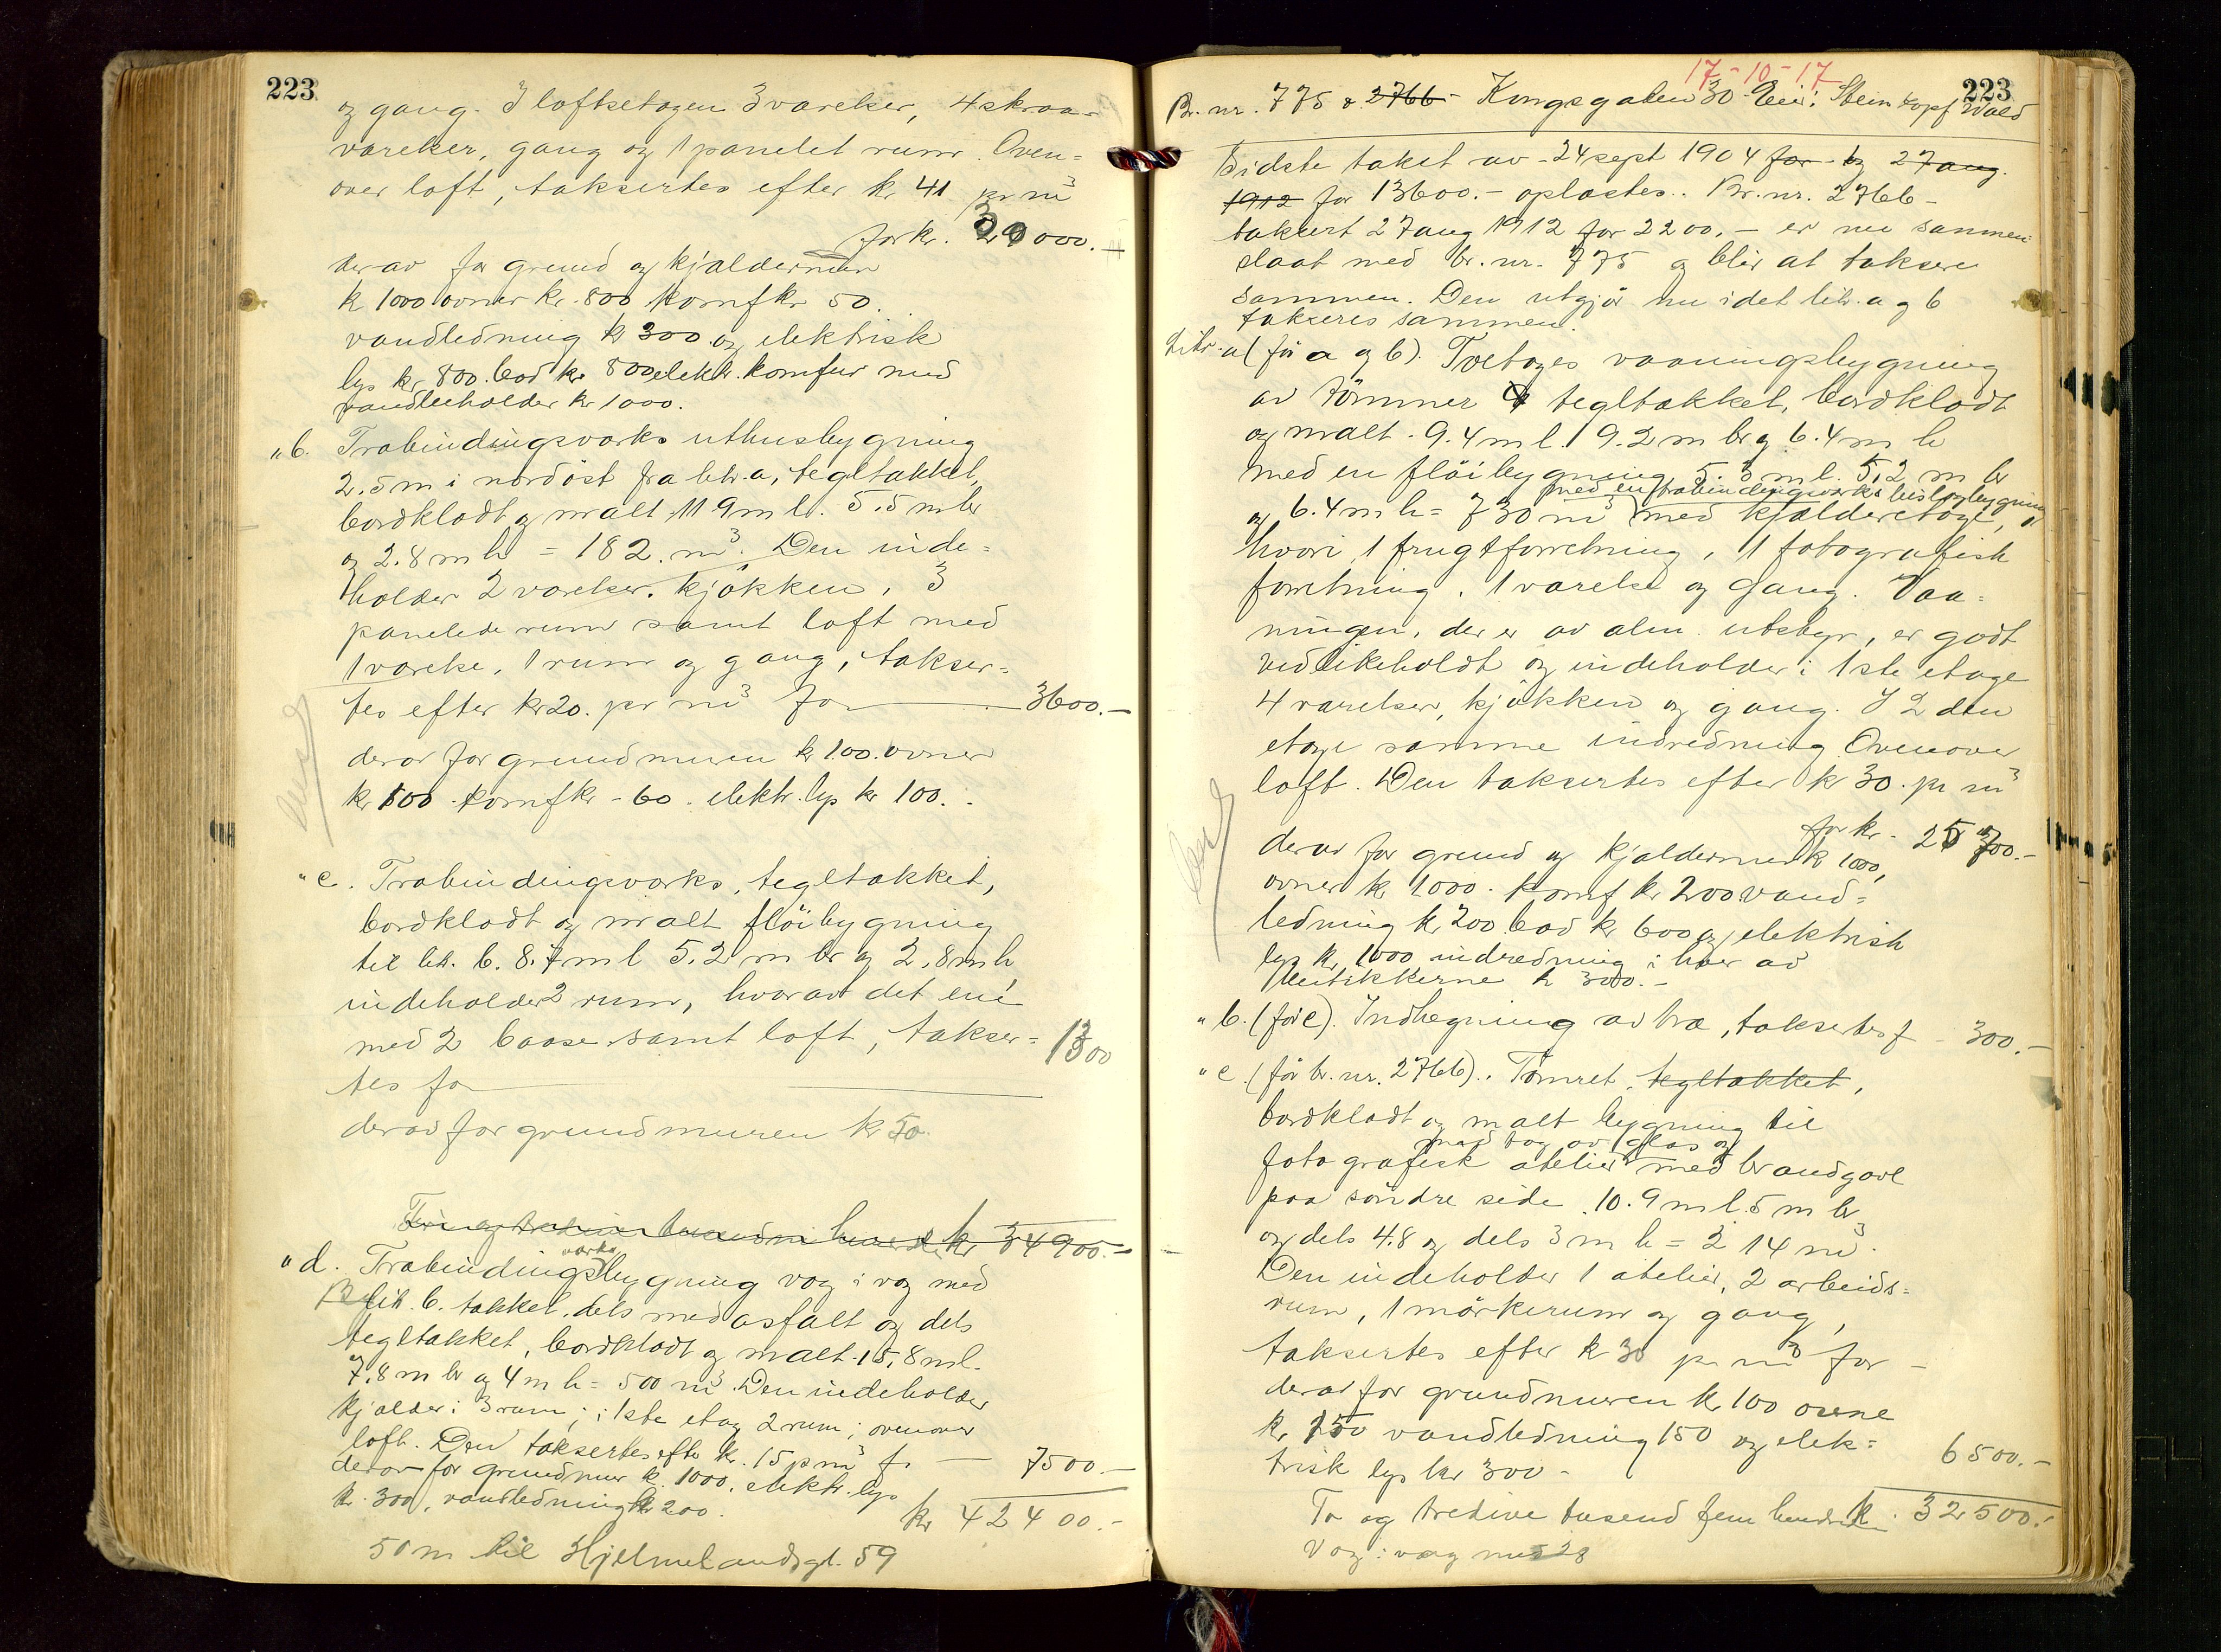 223
og gang. I loftsetagen 3 værelser, 4 skraa-
værelser, gang og 1 panelet rum. Oven-
over loft, taksertes efter kr 41 pr m³
for kr. 30000.-
derav for grund og kjældermur
kr 1000 ovner kr. 800 komf kr 50.
vandledning kr 300 og elektrisk
lys kr 800. bad kr 800 elektr. komfur med
vandbeholder kr 1000.
"b. Træbindingsværks uthusbygning
2.5 m i nordöst fra litr. a, tegltækket,
bordklædt og malt 11.9 m l. 5.5 m br
og 2.8 m h = 182. m³. Den inde-
holder 2 værelser. kjökken, 3
panelede rum samt loft med
1 værelse, 1 rum og gang, takser-
tes efter kr 20. pr m³ for 3600.-
derav for grundmuren kr 100. ovner
kr 100. komf kr - 60. elektr. lys kr 100.-
"c. Træbindingsværks, tegltækket,
bordklædt og malt flöibygning
til litr. b. 8.7 m l 5.2 m br og 2.8 m h,
indeholder 2 rum, hvorav det ene
med 2 baase samt loft, takser- 1300
tes for
derav for grundmuren kr 50.
kr 34900.-
"d. Træbindingsværksbygning væg i væg med
litr. b. tækket dels med asfalt og dels
tegltækket, bordklædt og malt 15,8 m l.
7.8 m br og 4 m h = 500 m³. Den indeholder
kjælder: 3 rum; i 1ste etag 2 rum; ovenover
loft. Den taksertes efter kr. 15 pr m³ for — 7500.-
derav for grundmur kr 1000, elektr. lys
kr. 300, vandledning kr 200.
kr 42400.-
50 m til Hjelmelandsgt. 59
17-10-17
223
Br. nr. 775 & 2766 - Kongsgaten 30 Eier: Steinkopf Wold
Sidste takst av - 24 sept 1904 for - og 27 aug.
1912 for 13600.- oplæstes. Br. nr. 2766 -
taksert 27 aug 1912 for 2200.- er nu sammen-
slaat med br. nr. 775 og blir at taksere
sammen. Den utgjör nu idet litr. a og b
takseres sammen.
Litr. a (för a og b). Toetages vaaningsbygning
av tömmer tegltækket, bordklædt
og malt. 9.4 m l. 9.2 m br og 6.4 m h
med en flöibygning 5.3 m l. 5.2 m br
med en træbindingsverks bislagbygning
og 6.4 m h = 730 m³ med kjælderetage,
hvori 1 frugtforretning, 1 fotografisk
forretning, 1 værelse og gang. Vaa-
ningen, der er av alm. utstyr, er godt
vedlikeholdt og indeholder i 1ste etage
4 værelser, kjökken og gang. I 2den
etage samme indredning. Ovenover
loft. Den taksertes efter kr 30. pr m³
for kr. 25700.-
derav for grund og kjældermur kr 1000,
ovner kr 1000. komf kr 200 vand-
ledning kr 200 bad kr 600 og elektrisk
lys kr. 1000 indredning i hver av
butikkerne kr 300.-
"b. (för c). Indhegning av træ, taksertes f - 300.-
"c. (för br. nr. 2766). Tömret, tegltækket,
bordklædt og malt bygning til
med tag av glas og
fotografisk atelier med brandgavl
paa söndre side. 10.9 m l. 5 m br
og dels 4.8 og dels 3 m h = 214 m³.
Den indeholder 1 atelier, 2 arbeids-
rum, 1 mörkerum og gang,
taksertes efter kr 30 pr m³ for -
derav for grundmuren kr 100 ovene
kr. 150 vandledning 150 og elek-
trisk lys kr 300 - 6500.-
To og tredive tusend fem hundrede kr. 32500.-
Væg i væg med 28